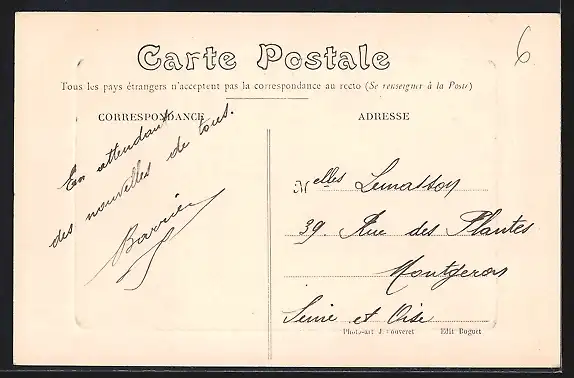 6
Carte Postale
Tous les pays étrangers n'acceptent pas la correspondance au recto (Se renseigner à la Poste)
CORRESPONDANCE
En attendant
des nouvelles de tous.
Barrier
ADRESSE
Melles Lemasson
39. Rue des Plantes
Montgeron
Seine et Oise
Photo-art J. Edit Boguet